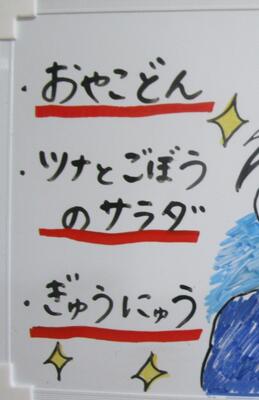 ・おやこどん
・ツナとごぼう
のサラダ
・ぎゅうにゅう